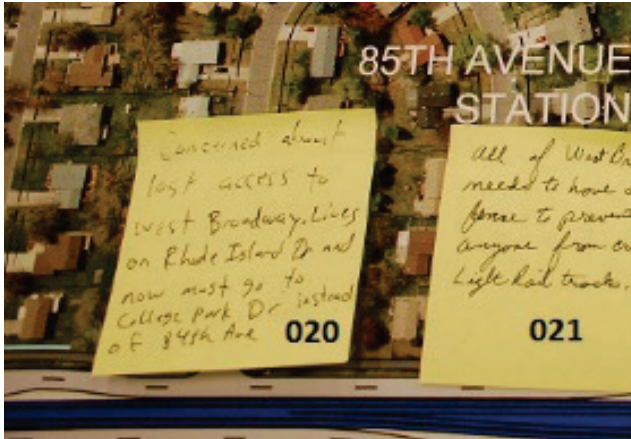 85TH AVENUE
STATION
Concerned about
lost access to
West Broadway. Lives
on Rhode Island Dr and
now must go to
College Park Dr instead
of 84th Ave
020
All of West Br
needs to have a
fence to prevent
anyone from cr
Light Rail tracks.
021